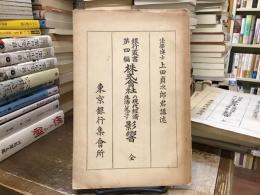 法學博士 上田貞次郎君講述
銀行叢書
第四編
株式會社
の現代經濟
生活に及す
影響
全
東京銀行集會所